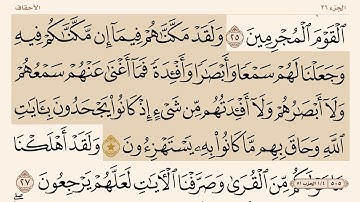 الجزء ٢٦ الأحقاف
ٱلْقَوْمَ ٱلْمُجْرِمِينَ ٢٥ وَلَقَدْ مَكَّنَّٰهُمْ فِيمَآ إِن مَّكَّنَّٰكُمْ فِيهِ
وَجَعَلْنَا لَهُمْ سَمْعًا وَأَبْصَٰرًا وَأَفْـِٔدَةً فَمَآ أَغْنَىٰ عَنْهُمْ سَمْعُهُمْ
وَلَآ أَبْصَٰرُهُمْ وَلَآ أَفْـِٔدَتُهُم مِّن شَىْءٍ إِذْ كَانُوا۟ يَجْحَدُونَ بِـَٔايَٰتِ
ٱللَّهِ وَحَاقَ بِهِم مَّا كَانُوا۟ بِهِۦ يَسْتَهْزِءُونَ وَلَقَدْ أَهْلَكْنَا
مِّنَ ٱلْقُرَىٰ وَصَرَّفْنَا ٱلْـَٔايَٰتِ لَعَلَّهُمْ يَرْجِعُونَ ٢٧
٥٠٥